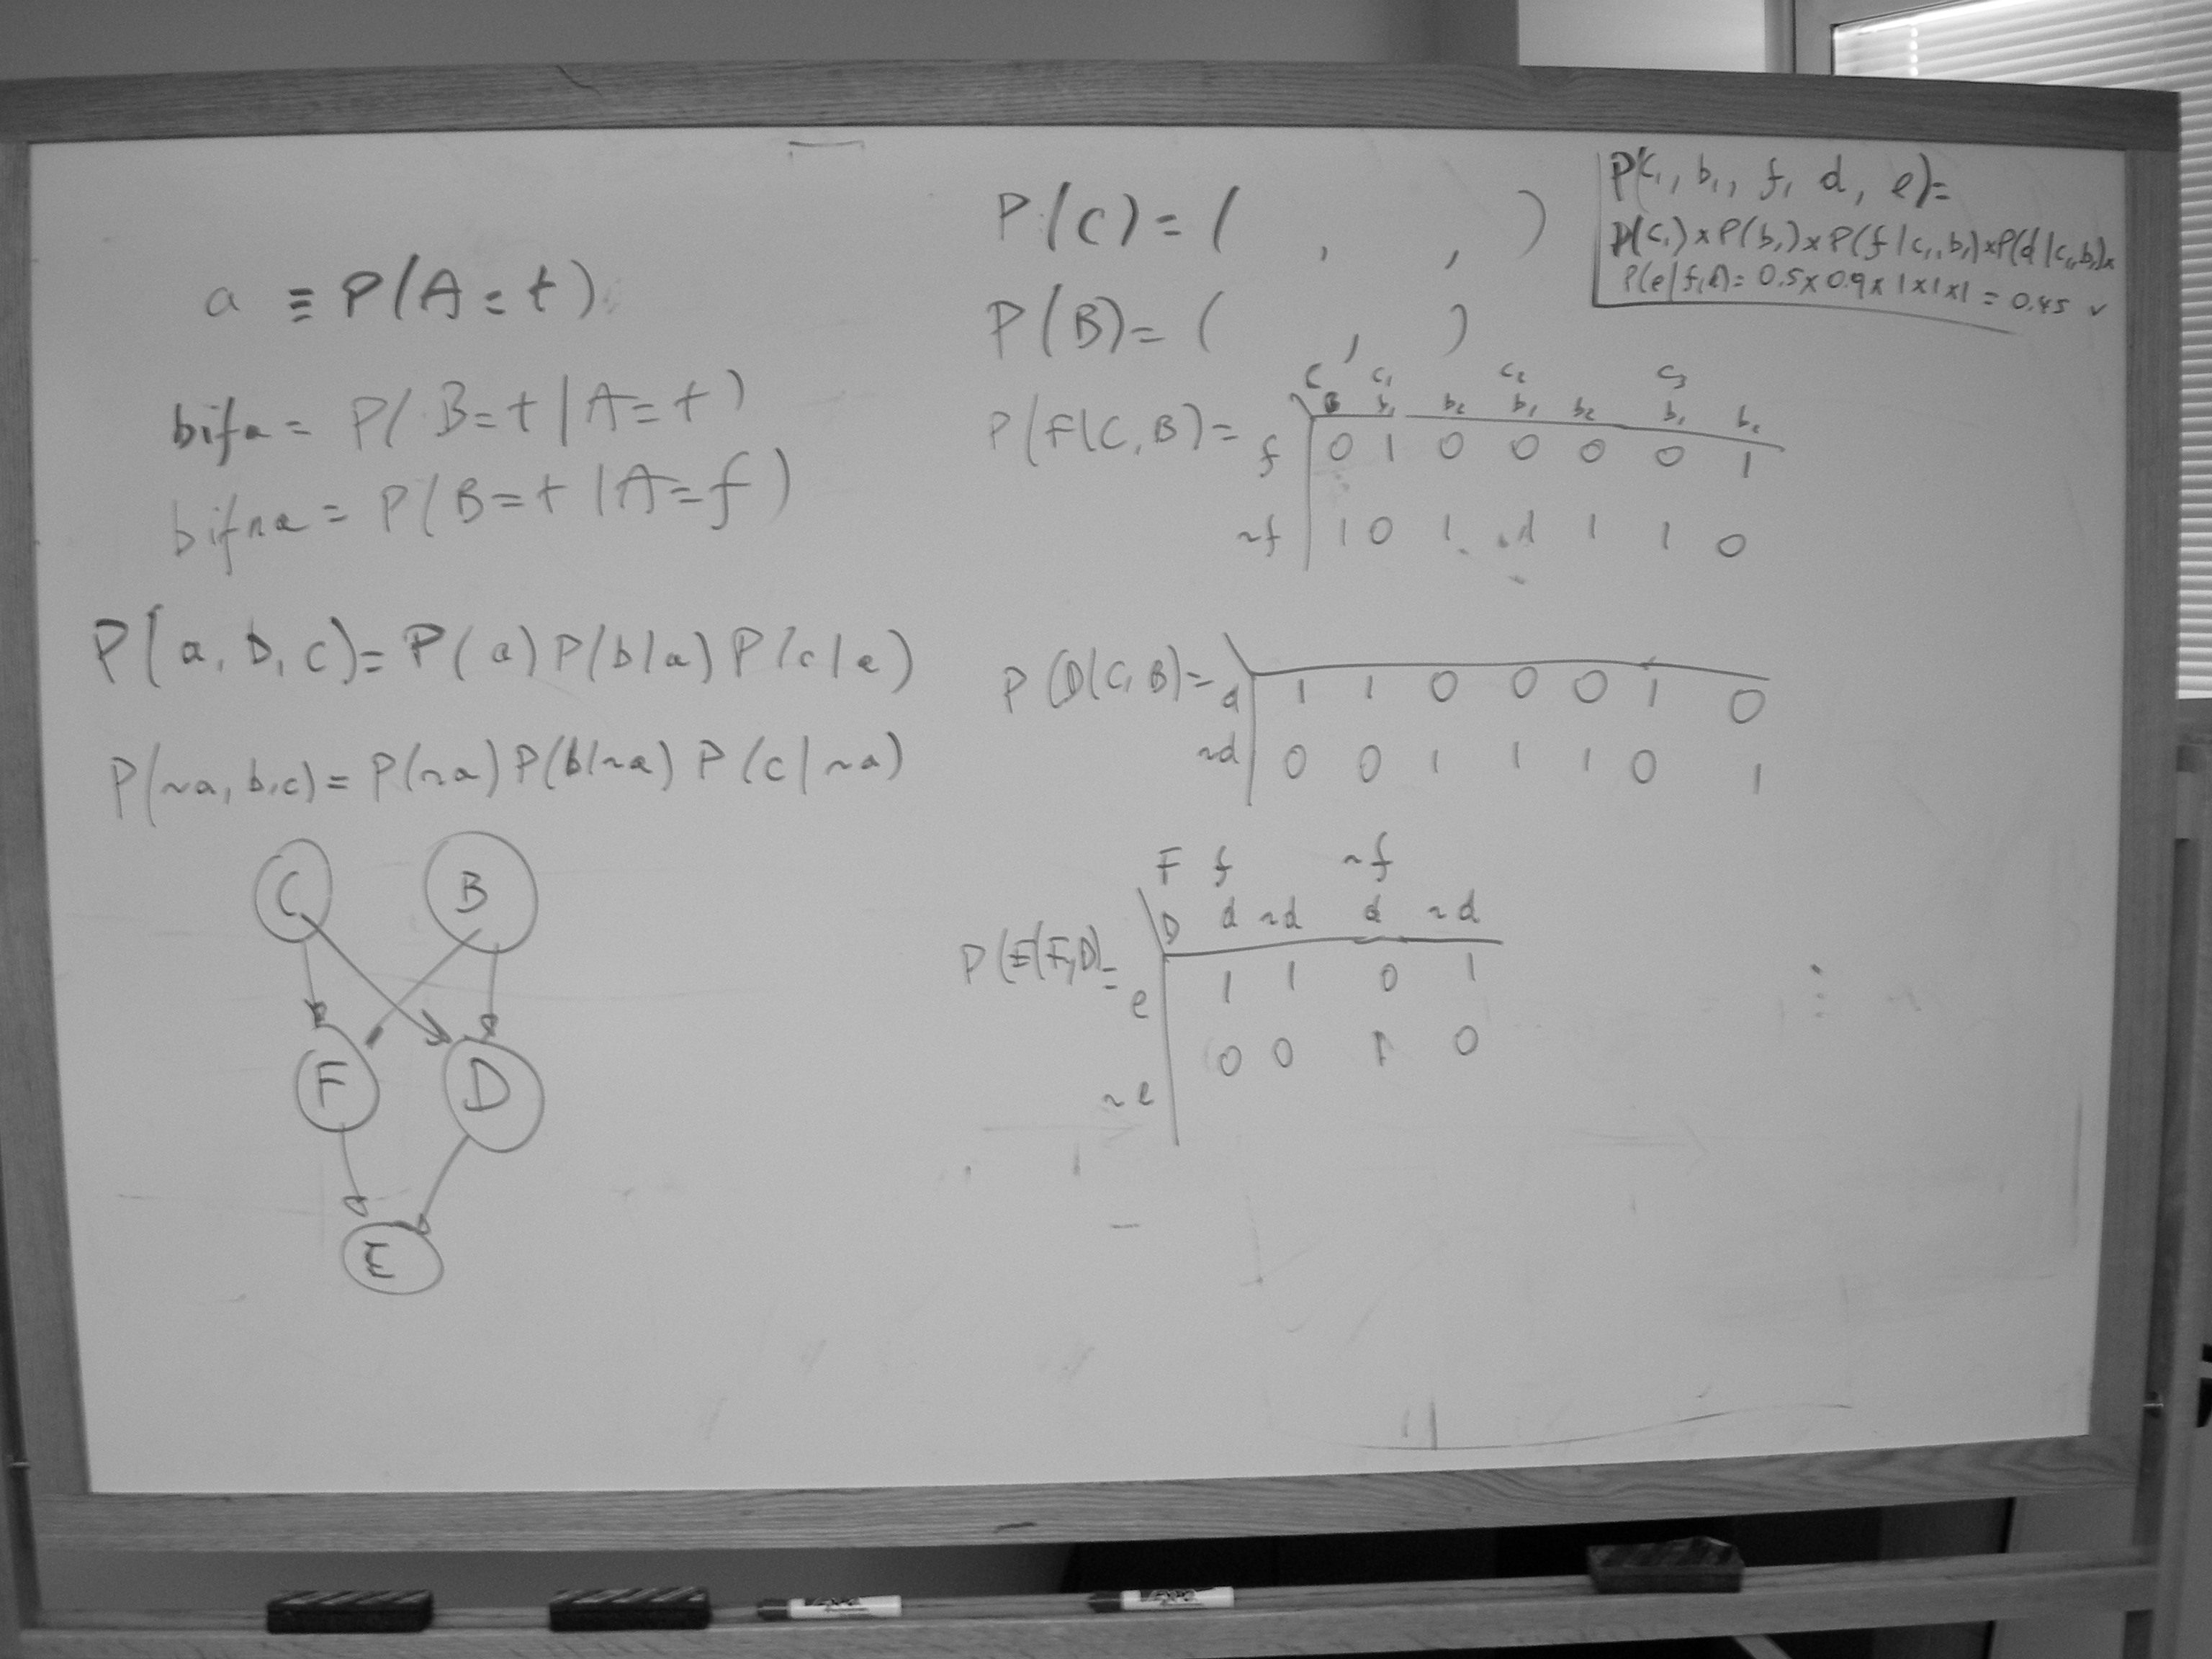 a ≡ P(A=t)
bifa = P(B=t|A=t)
bifna = P(B=t|A=f)
P(a,b,c)= P(a)P(b|a)P(c|a)
P(~a,b,c)= P(~a)P(b|~a)P(c|~a)
C B
F D
E
P(C)=( , , )
P(B)=( , )
C c₁ c₂ c₃
B b₁ b₂ b₁ b₂ b₁ b₂
P(F|C,B)= f 0 1 0 0 0 0 1
~f 1 0 1 1 1 1 0
P(D|C,B)= d 1 1 0 0 0 1 0
~d 0 0 1 1 1 0 1
F f ~f
D d ~d d ~d
P(E|F,D)= e 1 1 0 1
~e 0 0 1 0
P(c₁, b₁, f, d, e)=
P(c₁)×P(b₁)×P(f|c₁,b₁)×P(d|c₁,b₁)×
P(e|f,d)= 0.5×0.9×1×1×1 = 0.45 ✓